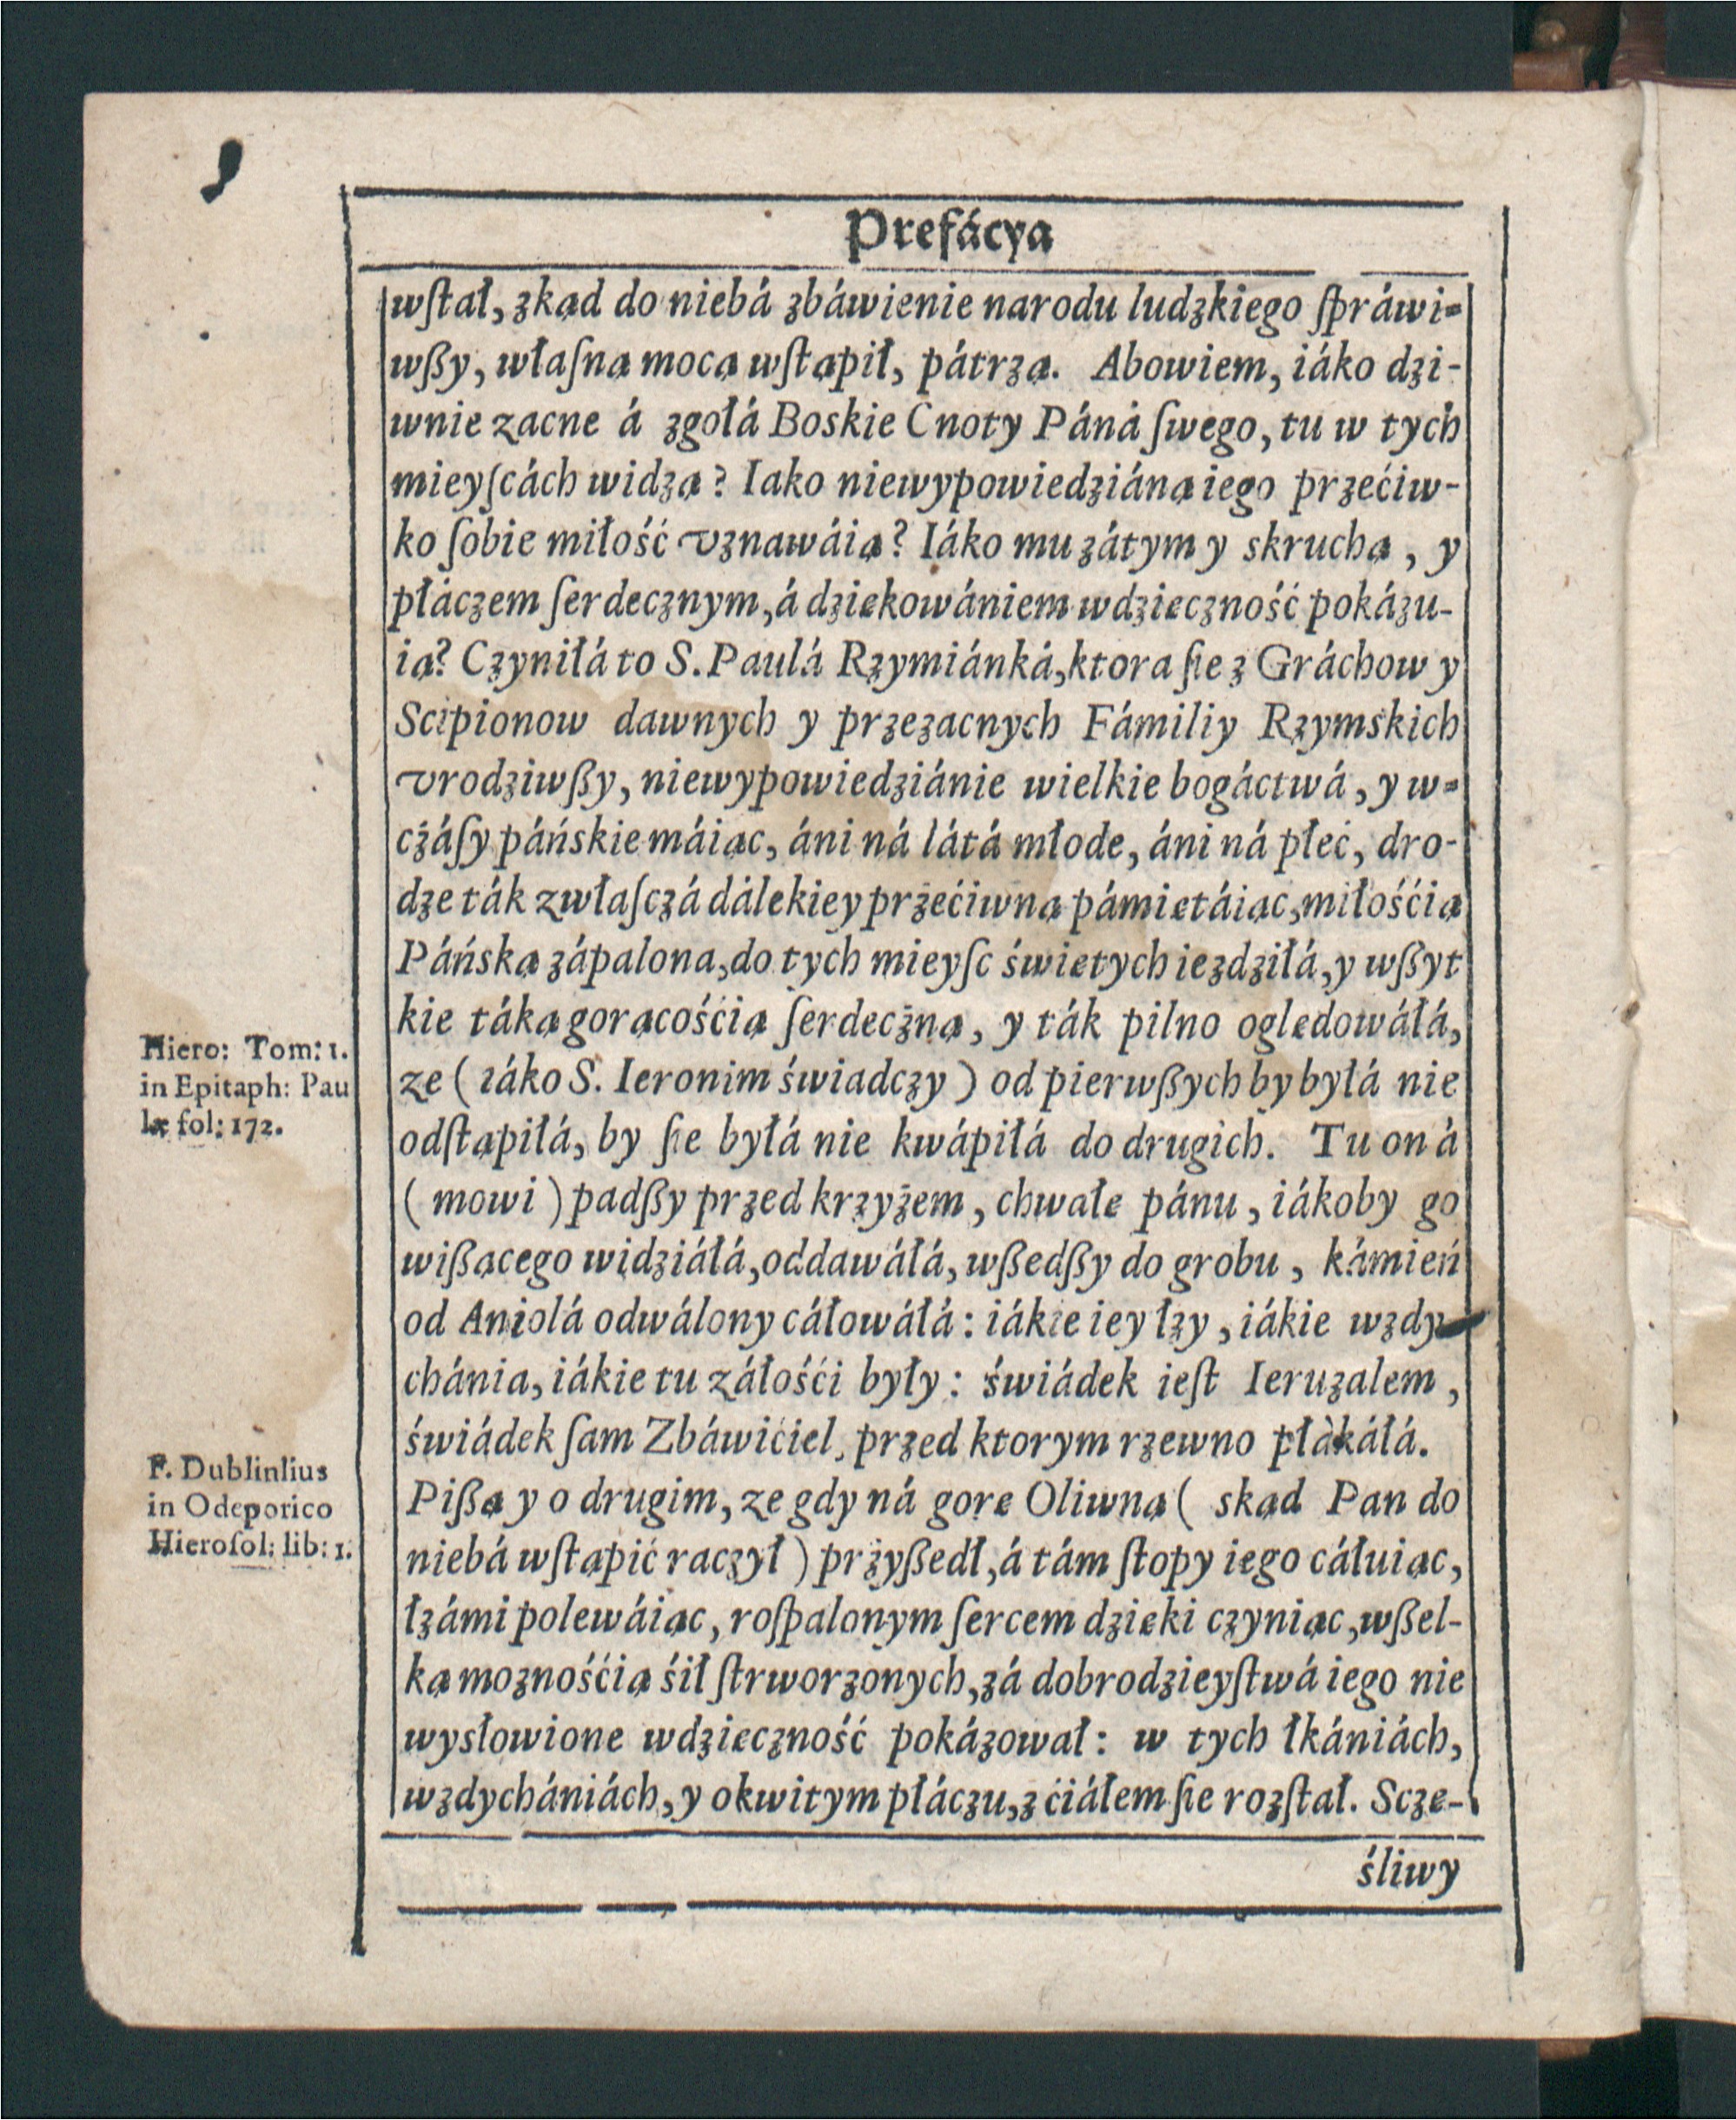 Prefácya
wſtał, zkąd do niebá zbáwienie narodu ludzkiego ſpráwi-
wßy, właſną mocą wſtąpił, pátrzą. Abowiem, iáko dzi-
wnie zacne á zgołá Boskie Cnoty Páná ſwego, tu w tych
mieyſcách widzą? Iako niewypowiedziáną iego przećiw-
ko ſobie miłość vznawáią? Iáko mu zátym y skruchą, y
płáczem ſerdecznym, á dziękowániem wdzięczność pokázu-
ią? Czyniłá to S. Paulá Rzymiánká, ktora ſie z Gráchow y
Scipionow dawnych y przezacnych Fámiliy Rzymskich
vrodziwßy, niewypowiedziánie wielkie bogáctwá, y w-
cżáſy páńskie máiąc, áni ná látá młode, áni ná płeć, dro-
dze ták zwłaſczá dálekiey przećiwną pámiętáiąc, miłośćią
Páńską zápalona, do tych mieyſc świętych iezdziłá, y wßyt
kie táką gorącośćią ſerdeczną, y ták pilno oględowáłá,
ze ( iáko S. Ieronim świadczy ) od pierwßych by byłá nie
odſtąpiłá, by ſie byłá nie kwápiłá do drugich. Tu oná
( mowi ) padßy przed krzyżem, chwałę pánu, iákoby go
wißącego widziáłá, oddawáłá, wßedßy do grobu, kámień
od Aniolá odwálony cáłowáłá: iákie iey łzy, iákie wzdy-
chánia, iákie tu záłośći były: świádek ieſt Ieruzalem,
świádek ſam Zbáwićiel, przed ktorym rzewno płákáłá.
Pißą y o drugim, ze gdy ná gorę Oliwną ( skąd Pan do
niebá wſtąpić raczył ) przyßedł, á tám ſtopy iego cáłuiąc,
łzámi polewáiąc, roſpalonym ſercem dzięki czyniąc, wßel-
ką moznośćią śił ſtrworzonych, zá dobrodzieyſtwá iego nie
wysłowione wdzięczność pokázował: w tych łkániách,
wzdychániách, y okwitym płáczu, z ćiáłem ſie rozſtał. Sczę-
śliwy
Hiero: Tom: 1.
in Epitaph: Pau
læ fol: 172.
F. Dublinlius
in Odeporico
Hieroſol: lib: 1.